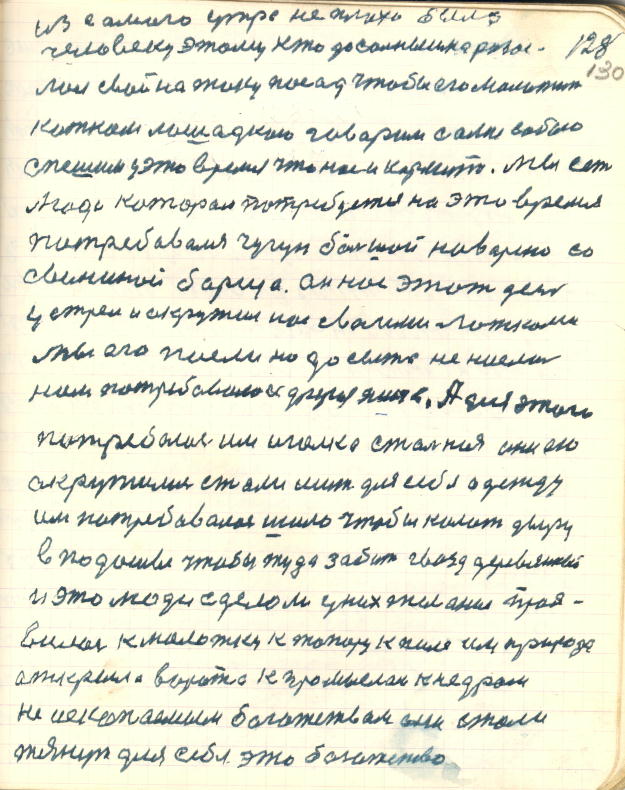 из самого утра не плохо было
человеку этому хто до солнышка розос-
128
130
лал свой на току посад чтобы его молотит
катком лошадкою говорим сами собою
спешим у это время что нас и кормит. Мы ест
люди которам потребуется на это время
потребовался чугун большой наварено со
свениной борща. он нас этот ден
устрел и окружил нас своими ложками
мы его поели но досыта не наелис
нам потребовалос другая жизн. А для этого
потребовалас им иголка стальная они ею
окружилис стали шит для себя одежду
им потребовалос шило чтобы колот дыру
в подошве чтобы туда забит гвозд деревяный
и это люди сделали у них желание проя-
вилос к молотку к топору к пиле им природа
аткрыла ворота к промыслам к недрам
не ископаемым богатствам они стали
тянут для себя это богатство